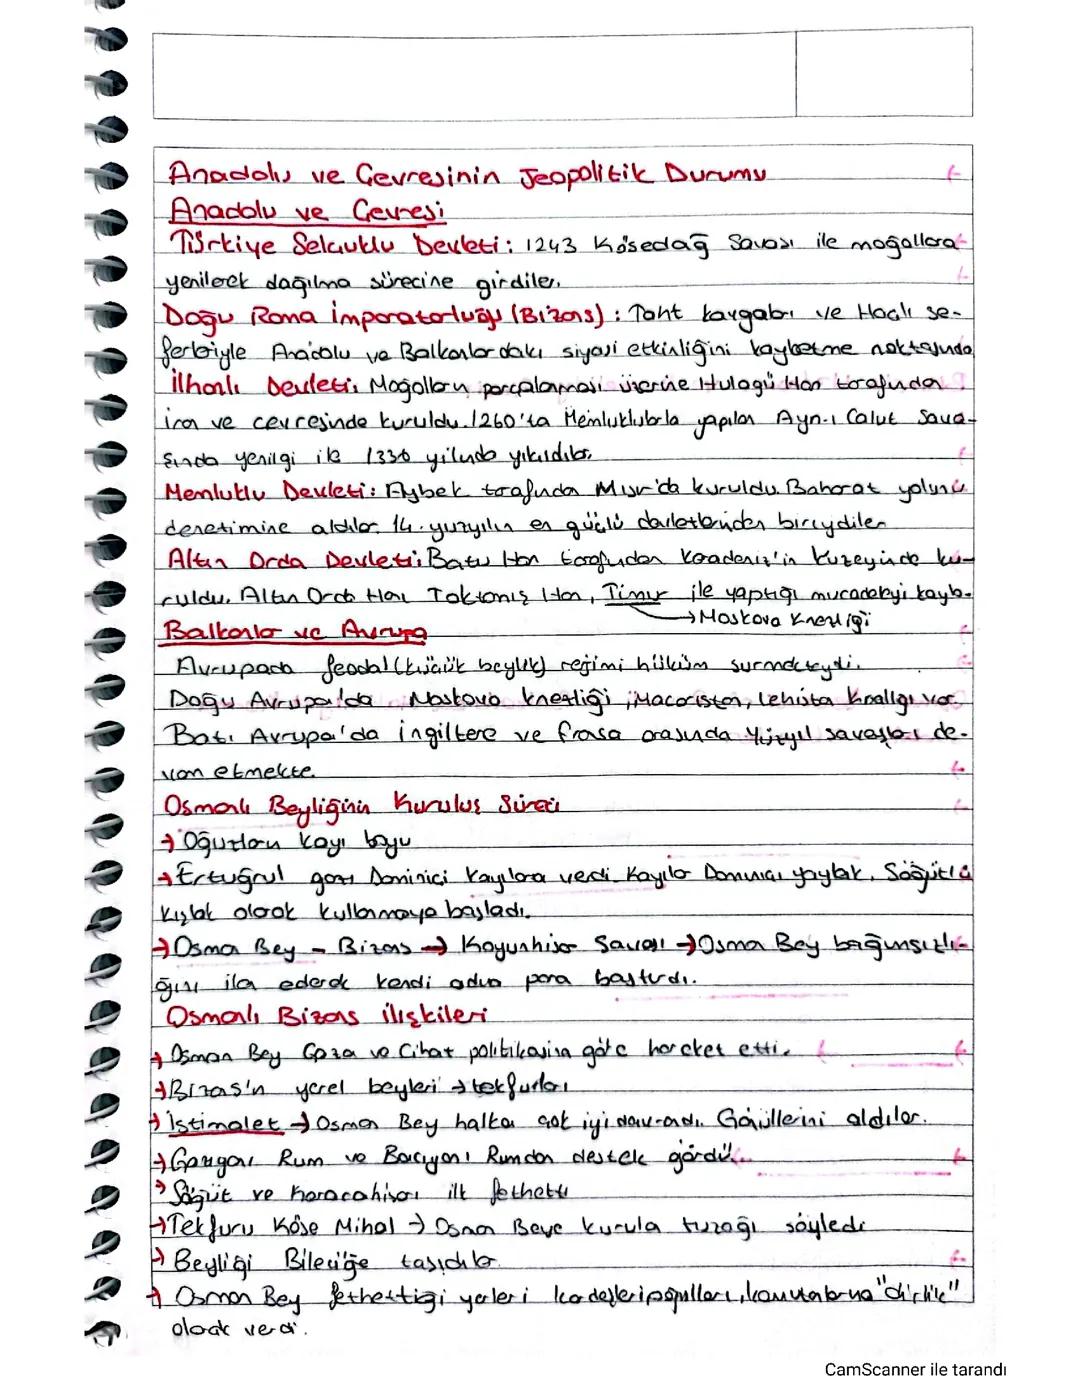 Anadolu ve Çevresinin Jeopolitik Durumu
Anadolu ve Çevresi
Türkiye Selçuklu Devleti: 1243 Kösedağ Savaşı ile moğollara
yenilerek dağılma sürecine girdiler.
Doğu Roma İmparatorluğu (Bizans): Taht kavgaları ve Haçlı se-
ferleriyle Anadolu ve Balkanlardaki siyasi etkinliğini kaybetme noktasında
İlhanlı Devleti: Moğolların parçalanması üzerine Hulagü Han tarafından
İran ve çevresinde kuruldu. 1260'ta Memluklularla yapılan Ayn-ı Calut Sava-
şında yenilgi ile 1336 yılında yıkıldılar.
Memluklu Devleti: Aybek tarafından Mısır'da kuruldu. Baharat yolunu
denetimine aldılar. 14. yüzyılın en güçlü devletlerinden biriydiler
Altın Orda Devleti: Batu Han tarafından Karadeniz'in Kuzeyinde ku-
ruldu. Altın Orda Hanı Toktamış Han, Timur ile yaptığı mücadeleyi kaybe-
→ Moskova Knezliği
Balkanlar ve Avrupa
Avrupada feodal (küçük beylik) rejimi hüküm sürmekteydi.
Doğu Avrupa'da Moskova knezliği, Macaristan, Lehistan Krallığı var.
Batı Avrupa'da İngiltere ve Fransa arasında Yüzyıl savaşları de-
vam etmekte.
Osmanlı Beyliğinin Kuruluş Süreci
→ Oğuzların Kayı boyu
→ Ertuğrul gazi Dominiçi Kayılara verdi. Kayılar Domaniçi yaylak, Söğüt'ü
kışlak olarak kullanmaya başladı.
→ Osman Bey - Bizans → Koyunhisar Savaşı → Osman Bey bağımsızlı-
ğını ilan ederek kendi adına para bastırdı.
Osmanlı Bizans ilişkileri
→ Osman Bey Gaza ve Cihat politikasına göre hareket etti.
→ Bizans'ın yerel beyleri → tekfurları
→ İstimalet → Osman Bey halka çok iyi davrandı. Gönüllerini aldılar.
→ Gaziyanı Rum ve Bacıyanı Rumdan destek gördü.
→ Söğüt ve Karacahisarı ilk fethetti
→ Tekfuru Köse Mihal → Osman Beye kurulan tuzağı söyledi
→ Beyliği Bileciğe taşıdılar
→ Osman Bey fethettiği yerleri kardeşleri, oğulları, komutanlarına "dirlik"
olarak verdi.
CamScanner ile tarandı